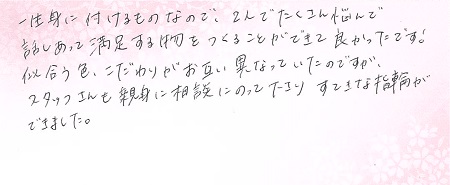 一生身に付けるものなので、2人でたくさん悩んで
話しあって満足する物をつくることができて良かったです!
似合う色、こだわりがお互い異なっていたのですが、
スタッフさんも親身に相談にのってくださり すてきな指輪が
できました。